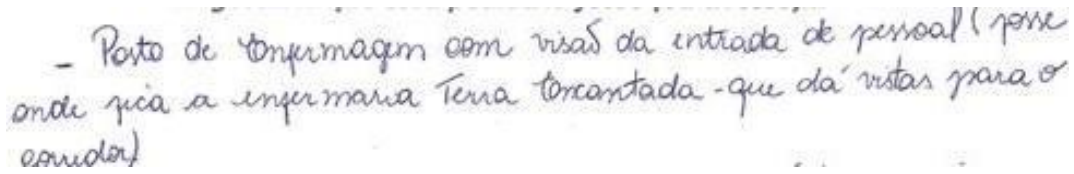 - Posto de Enfermagem com visão da entrada de pessoal (posse
onde fica a enfermaria Terra Encantada - que dá vistas para o
corredor)